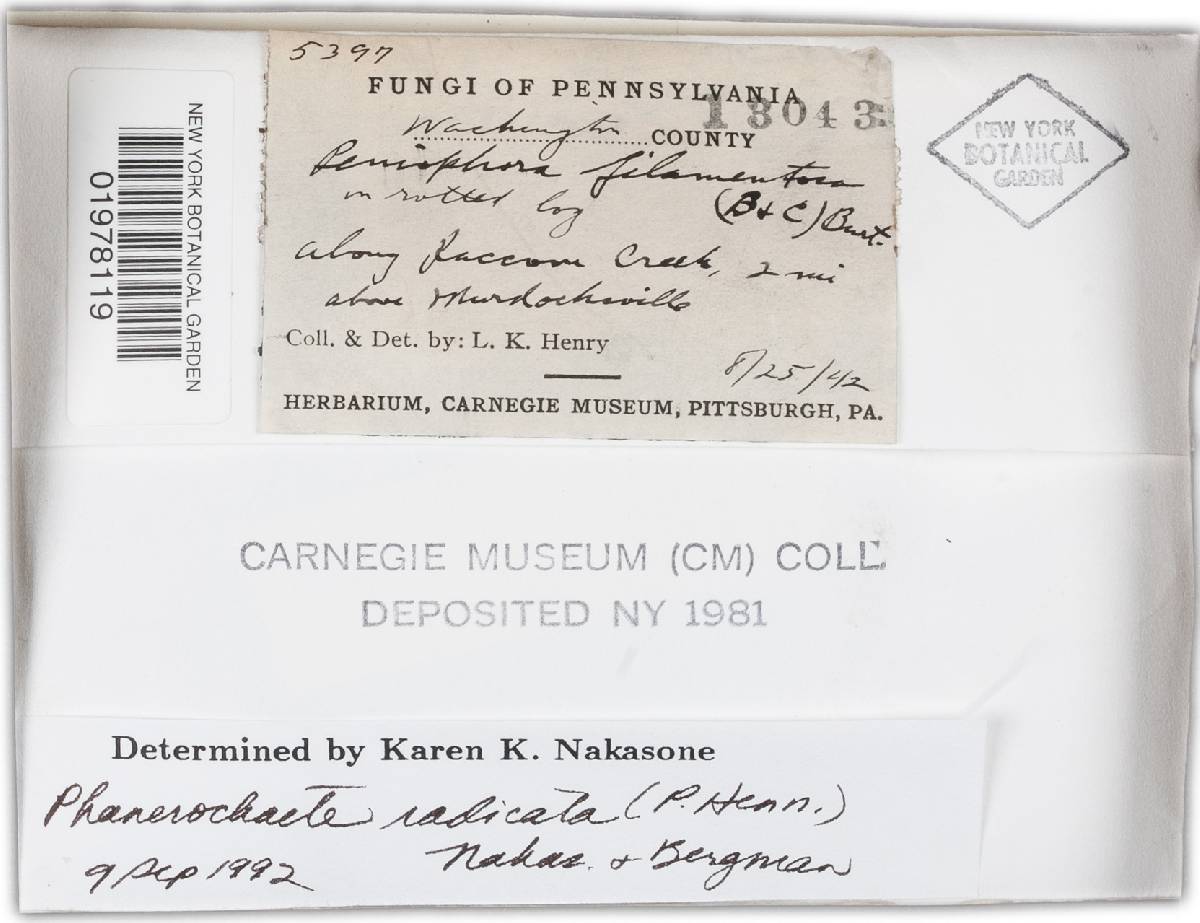 5397
FUNGI OF PENNSYLVANIA
13043
Washington COUNTY
Peniophora filamentosa
(B & C) Burt.
on rotted log
along Raccoon Creek, 2 mi
above Murdocksville
Coll. & Det. by: L. K. Henry
8/25/42
HERBARIUM, CARNEGIE MUSEUM, PITTSBURGH, PA.
NEW YORK BOTANICAL GARDEN
01978119
NEW YORK
BOTANICAL
GARDEN
CARNEGIE MUSEUM (CM) COLL.
DEPOSITED NY 1981
Determined by Karen K. Nakasone
Phanerochaete radicata (P. Henn.)
Nakas. & Bergman
9 Sep 1992